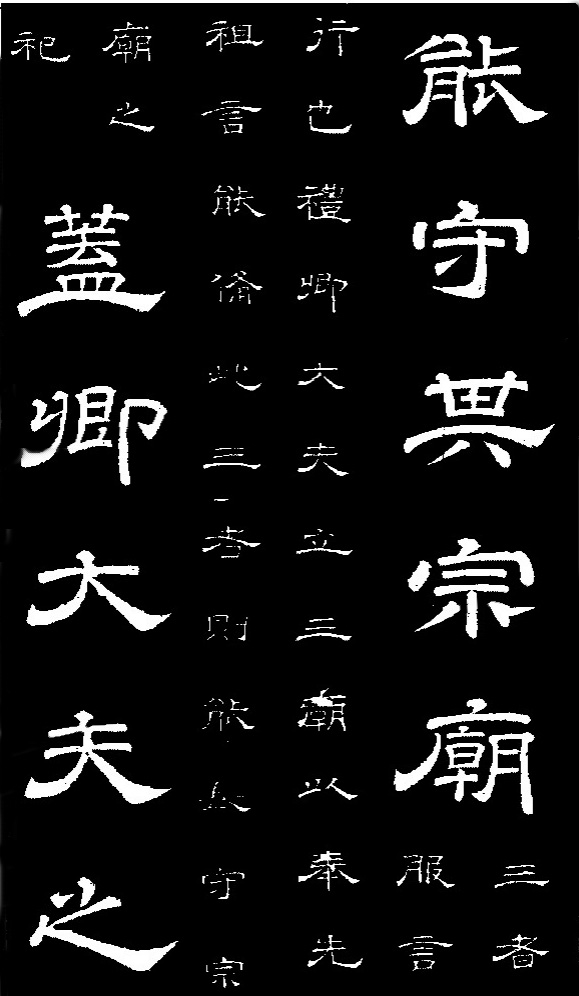 能守其宗廟
三者
服言
行也禮卿大夫立三廟以奉先
祖言能備此三者則能長守宗
廟之
祀
蓋卿大夫之